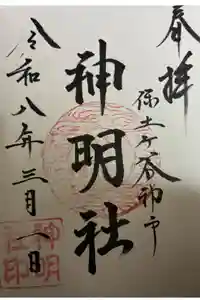 奉拝
保土ケ谷神戸
神明社
令和八年三月一日
神明社印